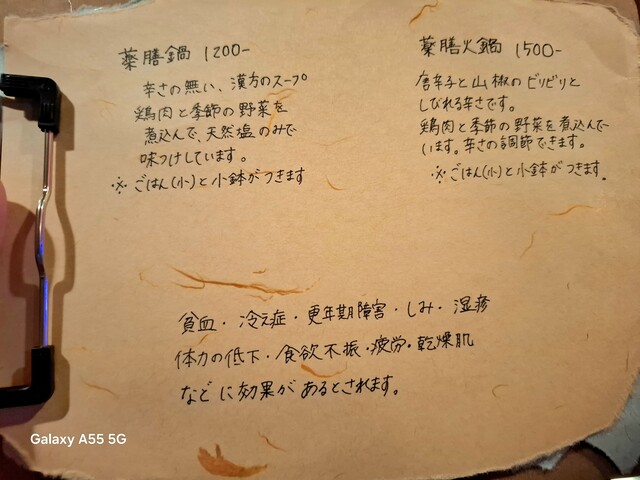 薬膳鍋 1200-
辛さの無い、漢方のスープ
鶏肉と季節の野菜を
煮込んで、天然塩のみで
味つけしています。
※ ごはん(小)と小鉢がつきます
薬膳火鍋 1500-
唐辛子と山椒のビリビリと
しびれる辛さです。
鶏肉と季節の野菜を煮込んで
います。辛さの調節できます。
※ ごはん(小)と小鉢がつきます.
貧血・冷え症・更年期障害・しみ・湿疹
体力の低下・食欲不振・疲労・乾燥肌
などに効果があるとされます。
Galaxy A55 5G